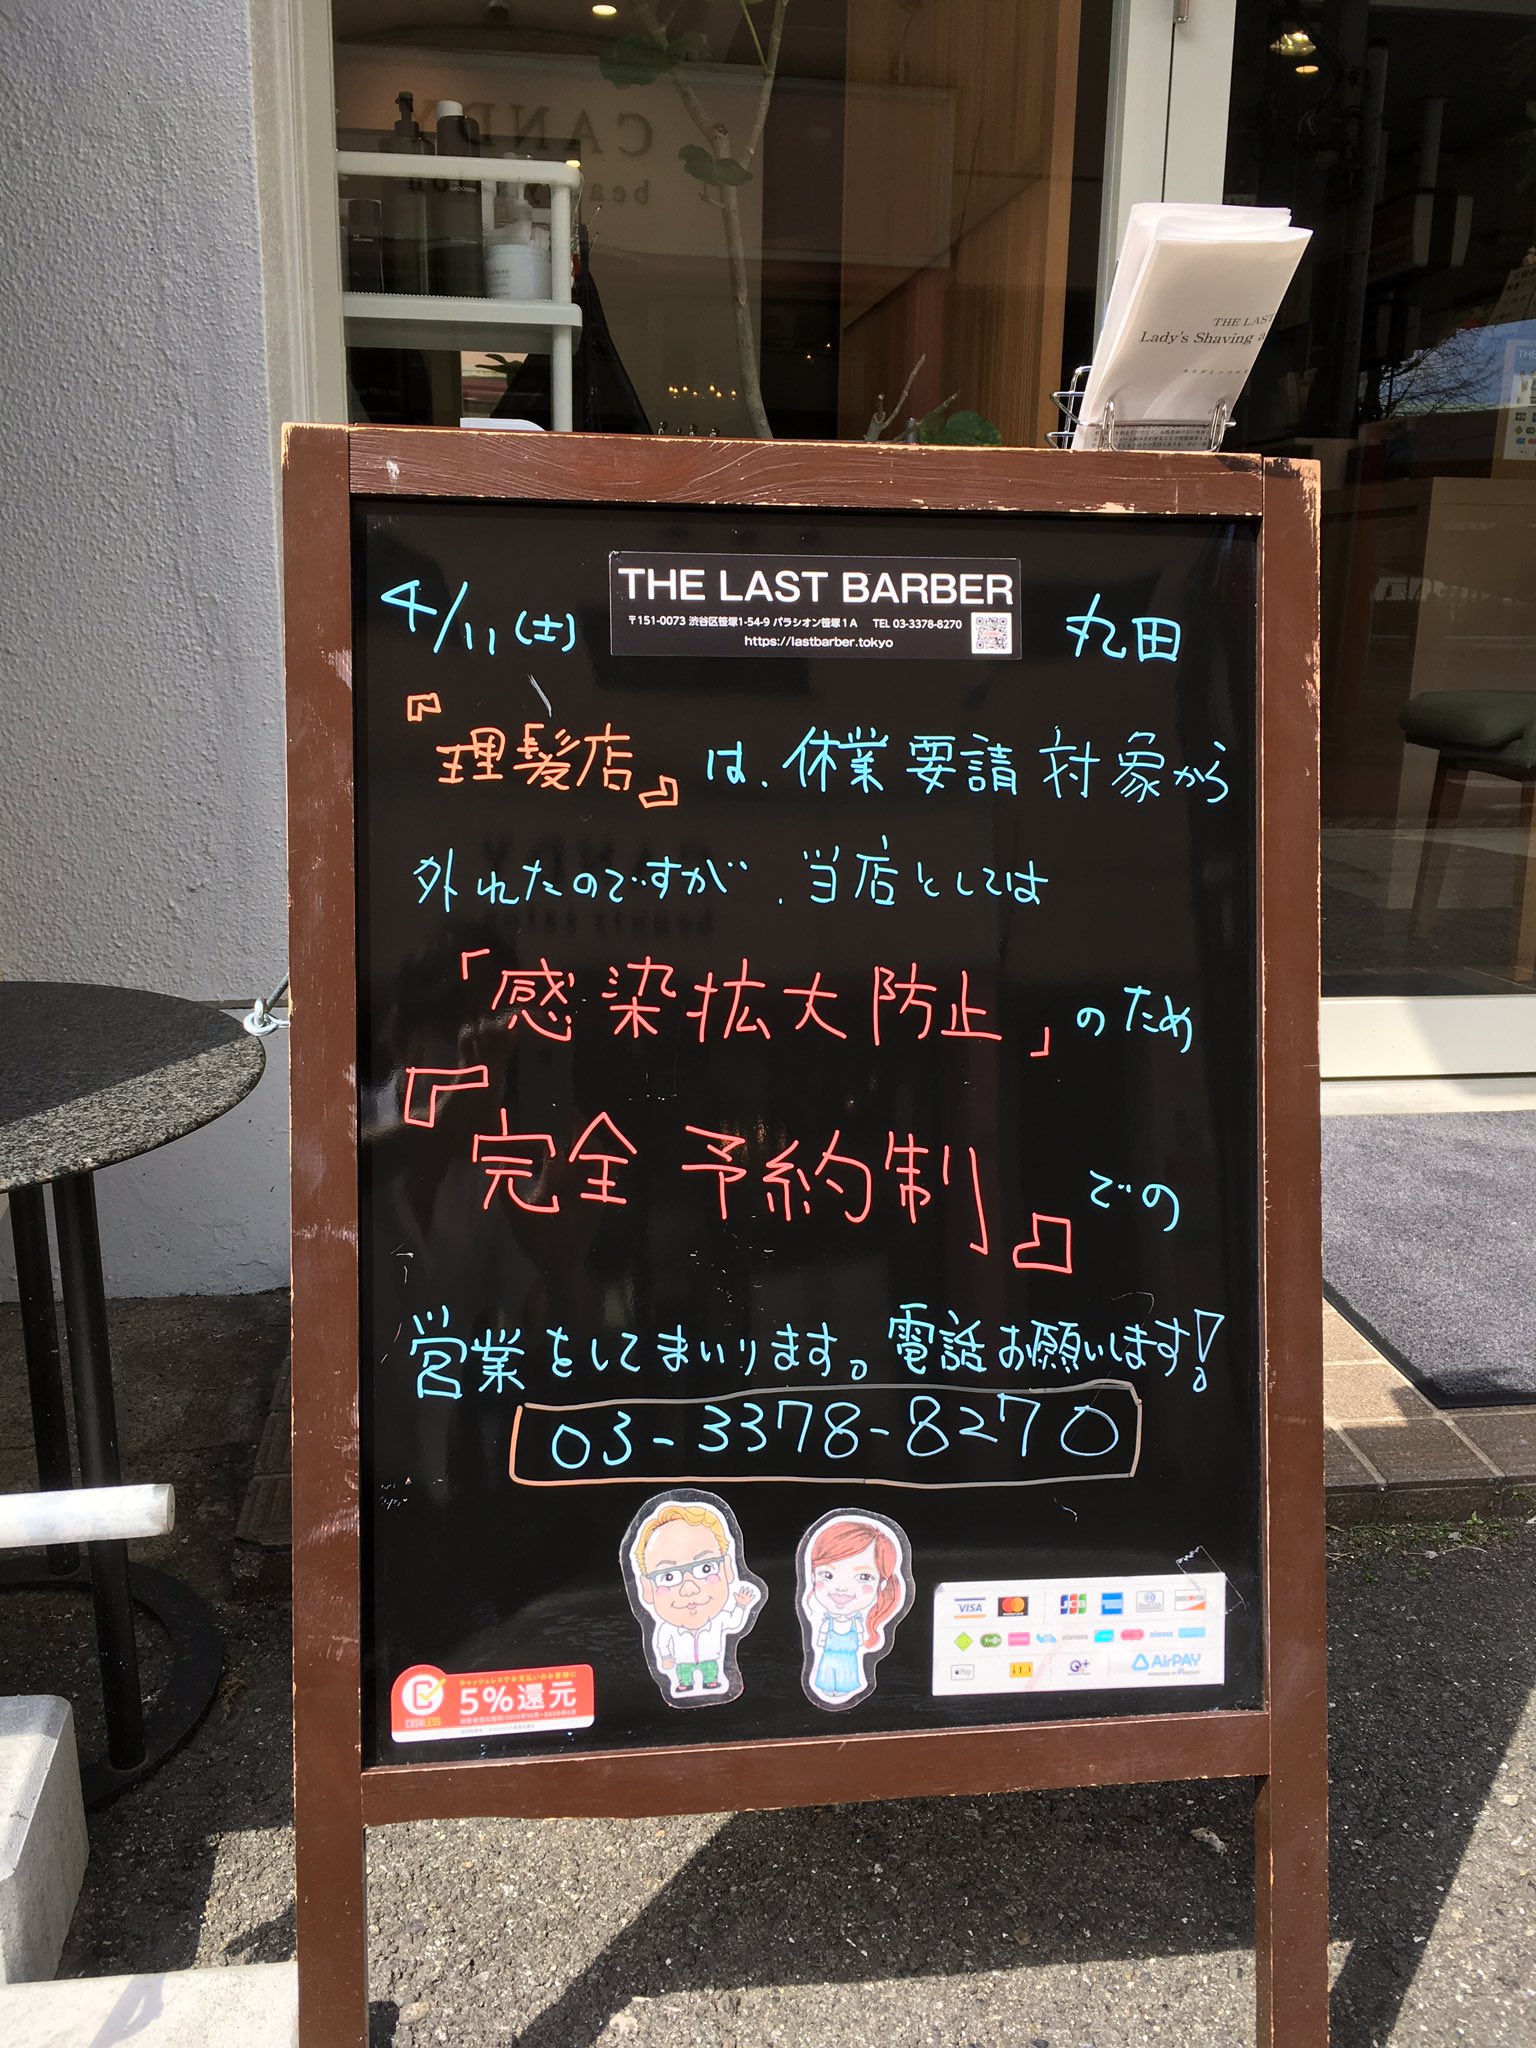 CANDY
THE LAST
Lady's Shaving
THE LAST BARBER
〒151-0073 渋谷区笹塚1-54-9 パラシオン笹塚1A TEL 03-3378-8270
https://lastbarber.tokyo
4/11(土)
丸田
『理髪店』は、休業要請対象から
外れたのですが、当店としては
「感染拡大防止」のため
『完全予約制』での
営業をしてまいります。電話お願いします!
03-3378-8270
キャッシュレスでお支払いのお客様に
5%還元
CASHLESS
VISA
JCB
DISCOVER
Pay
iD
AirPAY